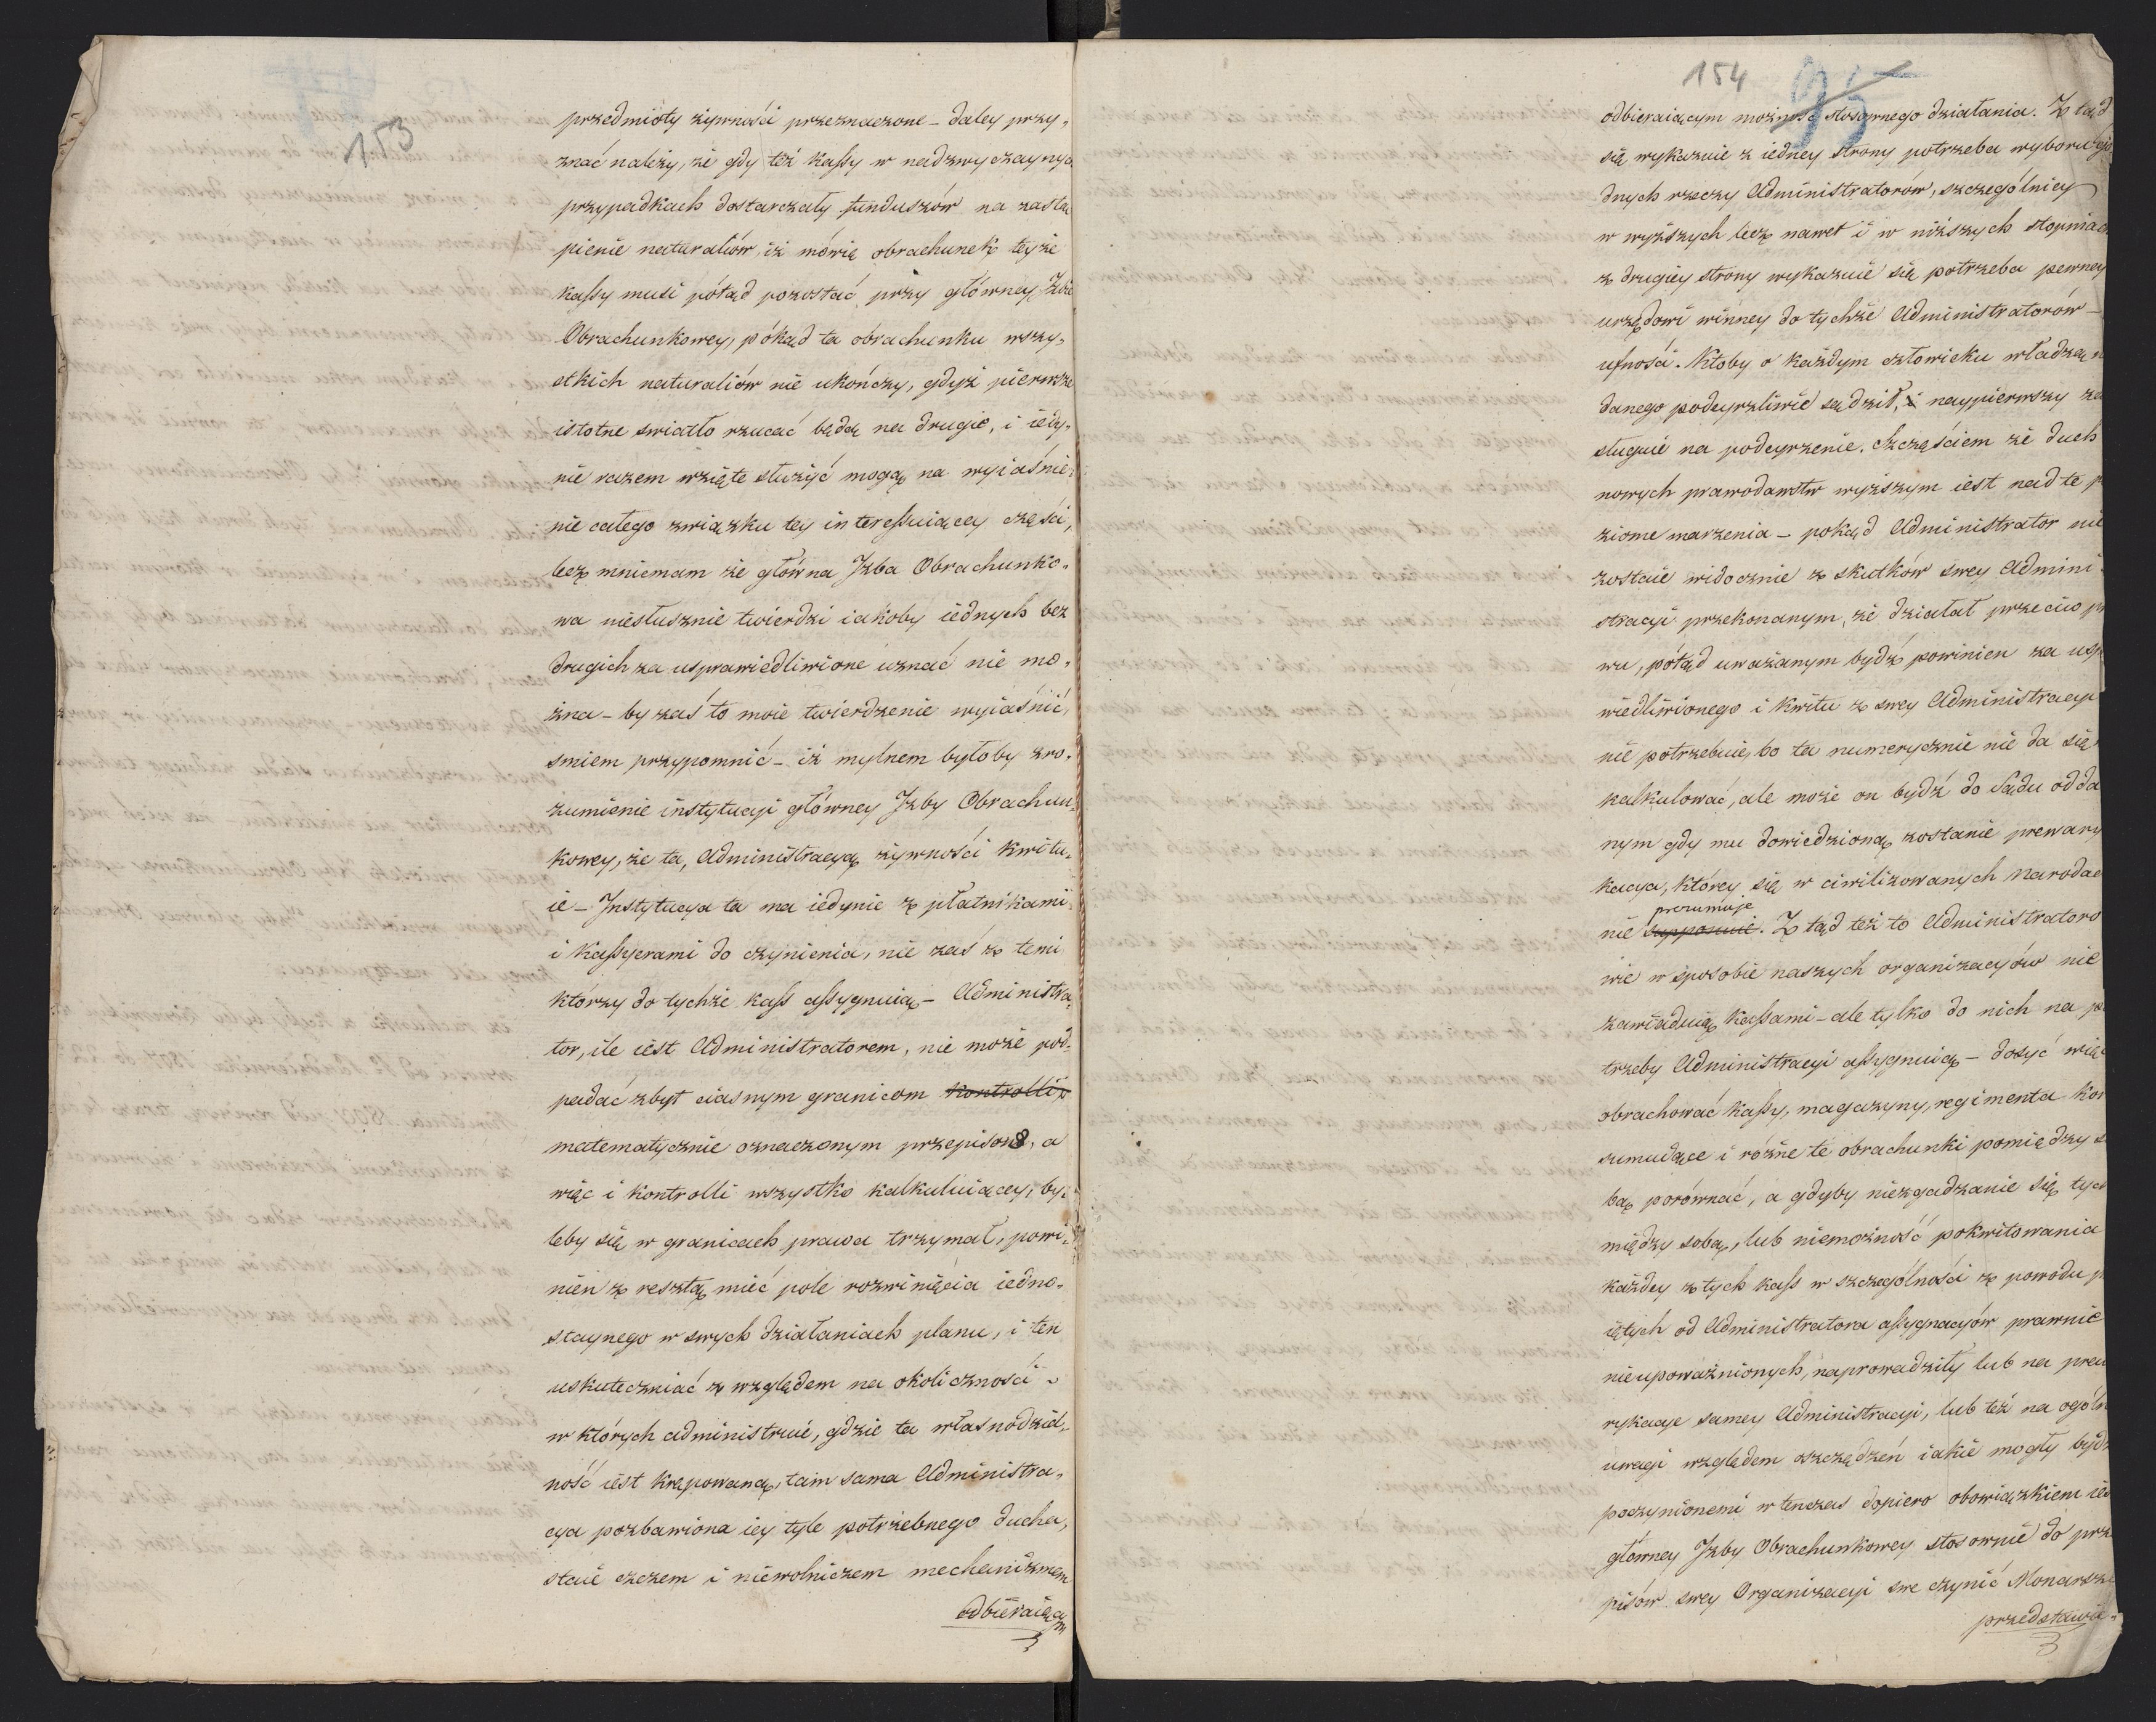 153
przedmioty żywności przeznaczone – daley przy-
znać należy, że gdy też kassy w nadzwyczaynych
przypadkach dostarczały funduszów na zastą
pienie naturaliów, iż mówię obrachunek teyże
kassy musi pótąd pozostać przy główney Izbie
Obrachunkowey, pókąd ta obrachunku wszy-
stkich naturaliów nie ukończy, gdyż pierwsze
istotne swiatło rzucać będą na drugie, i iedy-
nie razem wzięte służyć mogą na wyiaśnie-
nie całego związku tey interessuiącey części,
lecz mniemam że główna Izba Obrachunko-
wa niesłusznie twierdzi iakoby iednych bez
drugich za usprawiedliwione uznać nie mo-
żna – by zaś to moie twierdzenie wyiaśnić,
smiem przypomnić – iż mylnem byłoby zro-
zumienie instytucyi główney Izby Obrachun-
kowey, że ta, Administracyą żywności kwitu-
ie – Instytucya ta ma iedynie z płatnikami
i kassyerami do czynienia, nie zaś z temi
którzy do tychże kass assygnuią – Administra-
tor, ile iest Administratorem, nie może pod-
padać zbyt ciasnym granicom kontrolli
matematycznie oznaczonym przepisom, a
więc i kontrolli wszystko kalkuluiącey, by-
leby się w granicach prawa trzymał, powi-
nien z resztą mieć pole rozwinięcia iedno-
staynego w swych działaniach planu, i ten
uskuteczniać z względem na okoliczności
w których administruie, gdzie ta własnodziel-
ność iest krępowaną, tam sama Administra-
cya pozbawiona iey tyle potrzebnego ducha,
staie czczem i niewolniczem mechanizmem
odbieraiącym
154
95
odbieraiącym możność stosownego działania. Z tąd
się wykazuie z iedney strony potrzeba wyboru go
dnych rzeczy Administratorów, szczególniey
w wyższych lecz nawet i w niższych stopniach
z drugiey strony wykazuie się potrzeba pewney
urzędowi winney do tychże Administratorów –
ufności. Ktoby o każdym człowieku władzą na
danego podeyrzliwie sądził, i naypierwszy za
sługuie na podeyrzenie. Szczęściem że duch
nowych prawodawstw wyższym iest nad te
ziome marzenia – pokąd Administrator nie
zostaie widocznie z skutków swey Admini-
stracyi przekonanym, że działał przeciw pra
wu, pótąd uważanym bydź powinien za uspra
wiedliwionego i kwitu z swey Administracyi
nie potrzebuie, bo ta numerycznie nie da się
kalkulować, ale może on bydź do Sądu odda
nym gdy mu dowiedzioną zostanie prewary
kacya, którey się w ciwilizowanych narodach
prezumuje
nie supponuie. Z tąd też to Administratoro
wie w sposobie naszych organizacyów nie
zawiaduią kassami – ale tylko do nich na po
trzeby Administracyi assygnuią – dosyć więc
obrachować kassy, magazyny, regimenta kon
sumuiące i różne te obrachunki pomiędzy so
bą porównać, a gdyby niezgadzanie się tych
między sobą, lub niemożność pokwitowania
każdey z tych kass w szczególności z powodu
iętych od Administratora assygnacyów prawnie
nieupoważnionych, naprowadziły lub na prewa
rykacye samey Administracyi, lub też na ogóln
uwagi względem oszczędzeń iakie mogły bydź
poczynionemi w tenczas dopiero obowiązkiem iest
główney Izby Obrachunkowey stosownie do prze
pisów swey Organizacyi swe czynić Monarsze
przedstawie-